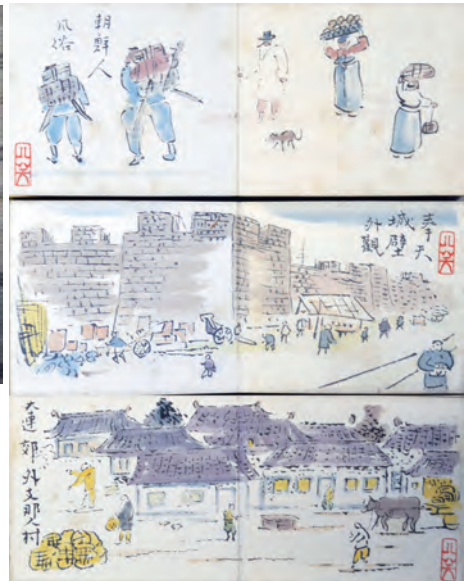 朝鮮人
風俗
奉天
城壁
外觀
大連郊外支那人村